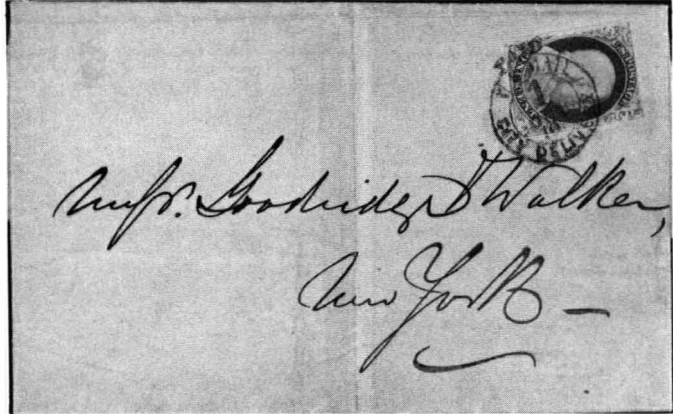 MAR
CITY DELIVERY
Messrs. Goodridge & Walker,
New York -